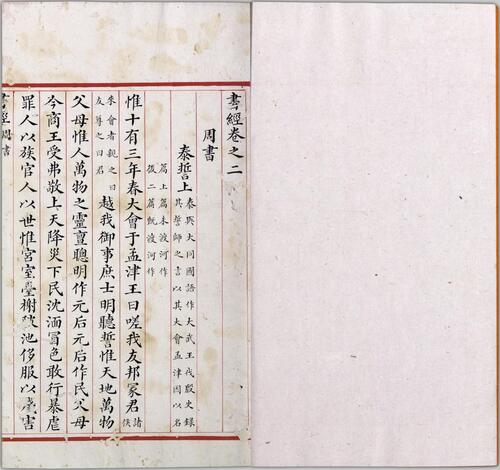 書經卷之二
周書
泰誓上
泰與大同國語作大武王伐殷史錄
其誓師之言以其大會孟津因以名
篇上篇未渡河作
後二篇既渡河作
惟十有三年春大會于孟津王曰嗟我友邦冢君諸侯
來會者親之曰
友尊之曰君
越我御事庶士明聽誓惟天地萬物
父母惟人萬物之靈亶聰明作元后元后作民父母
今商王受弗敬上天降災下民沈湎冒色敢行暴虐
罪人以族官人以世惟宮室臺榭陂池侈服以殘害
書經 周書